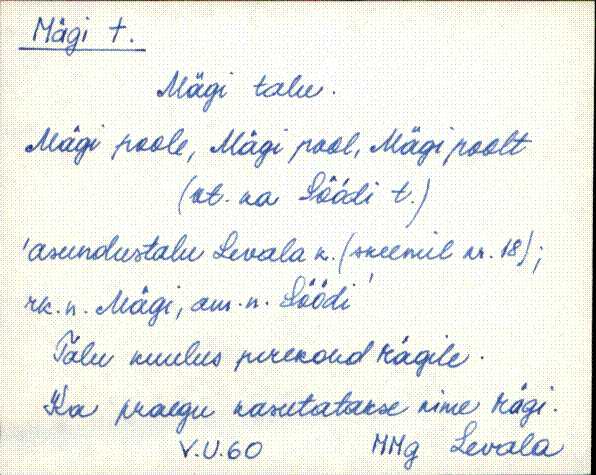 Mägi t.
Mägi talu.
Mägi poole, Mägi pool, Mägi poolt
(vt. ka Söödi t.)
'asundustalu Levala k. (skeemil nr. 18);
rk. n. Mägi, am. n. Söödi'
Talu kuulus perekond Mägile.
Ka praegu kasutatakse nime Mägi.
V.U.60 MMg Levala